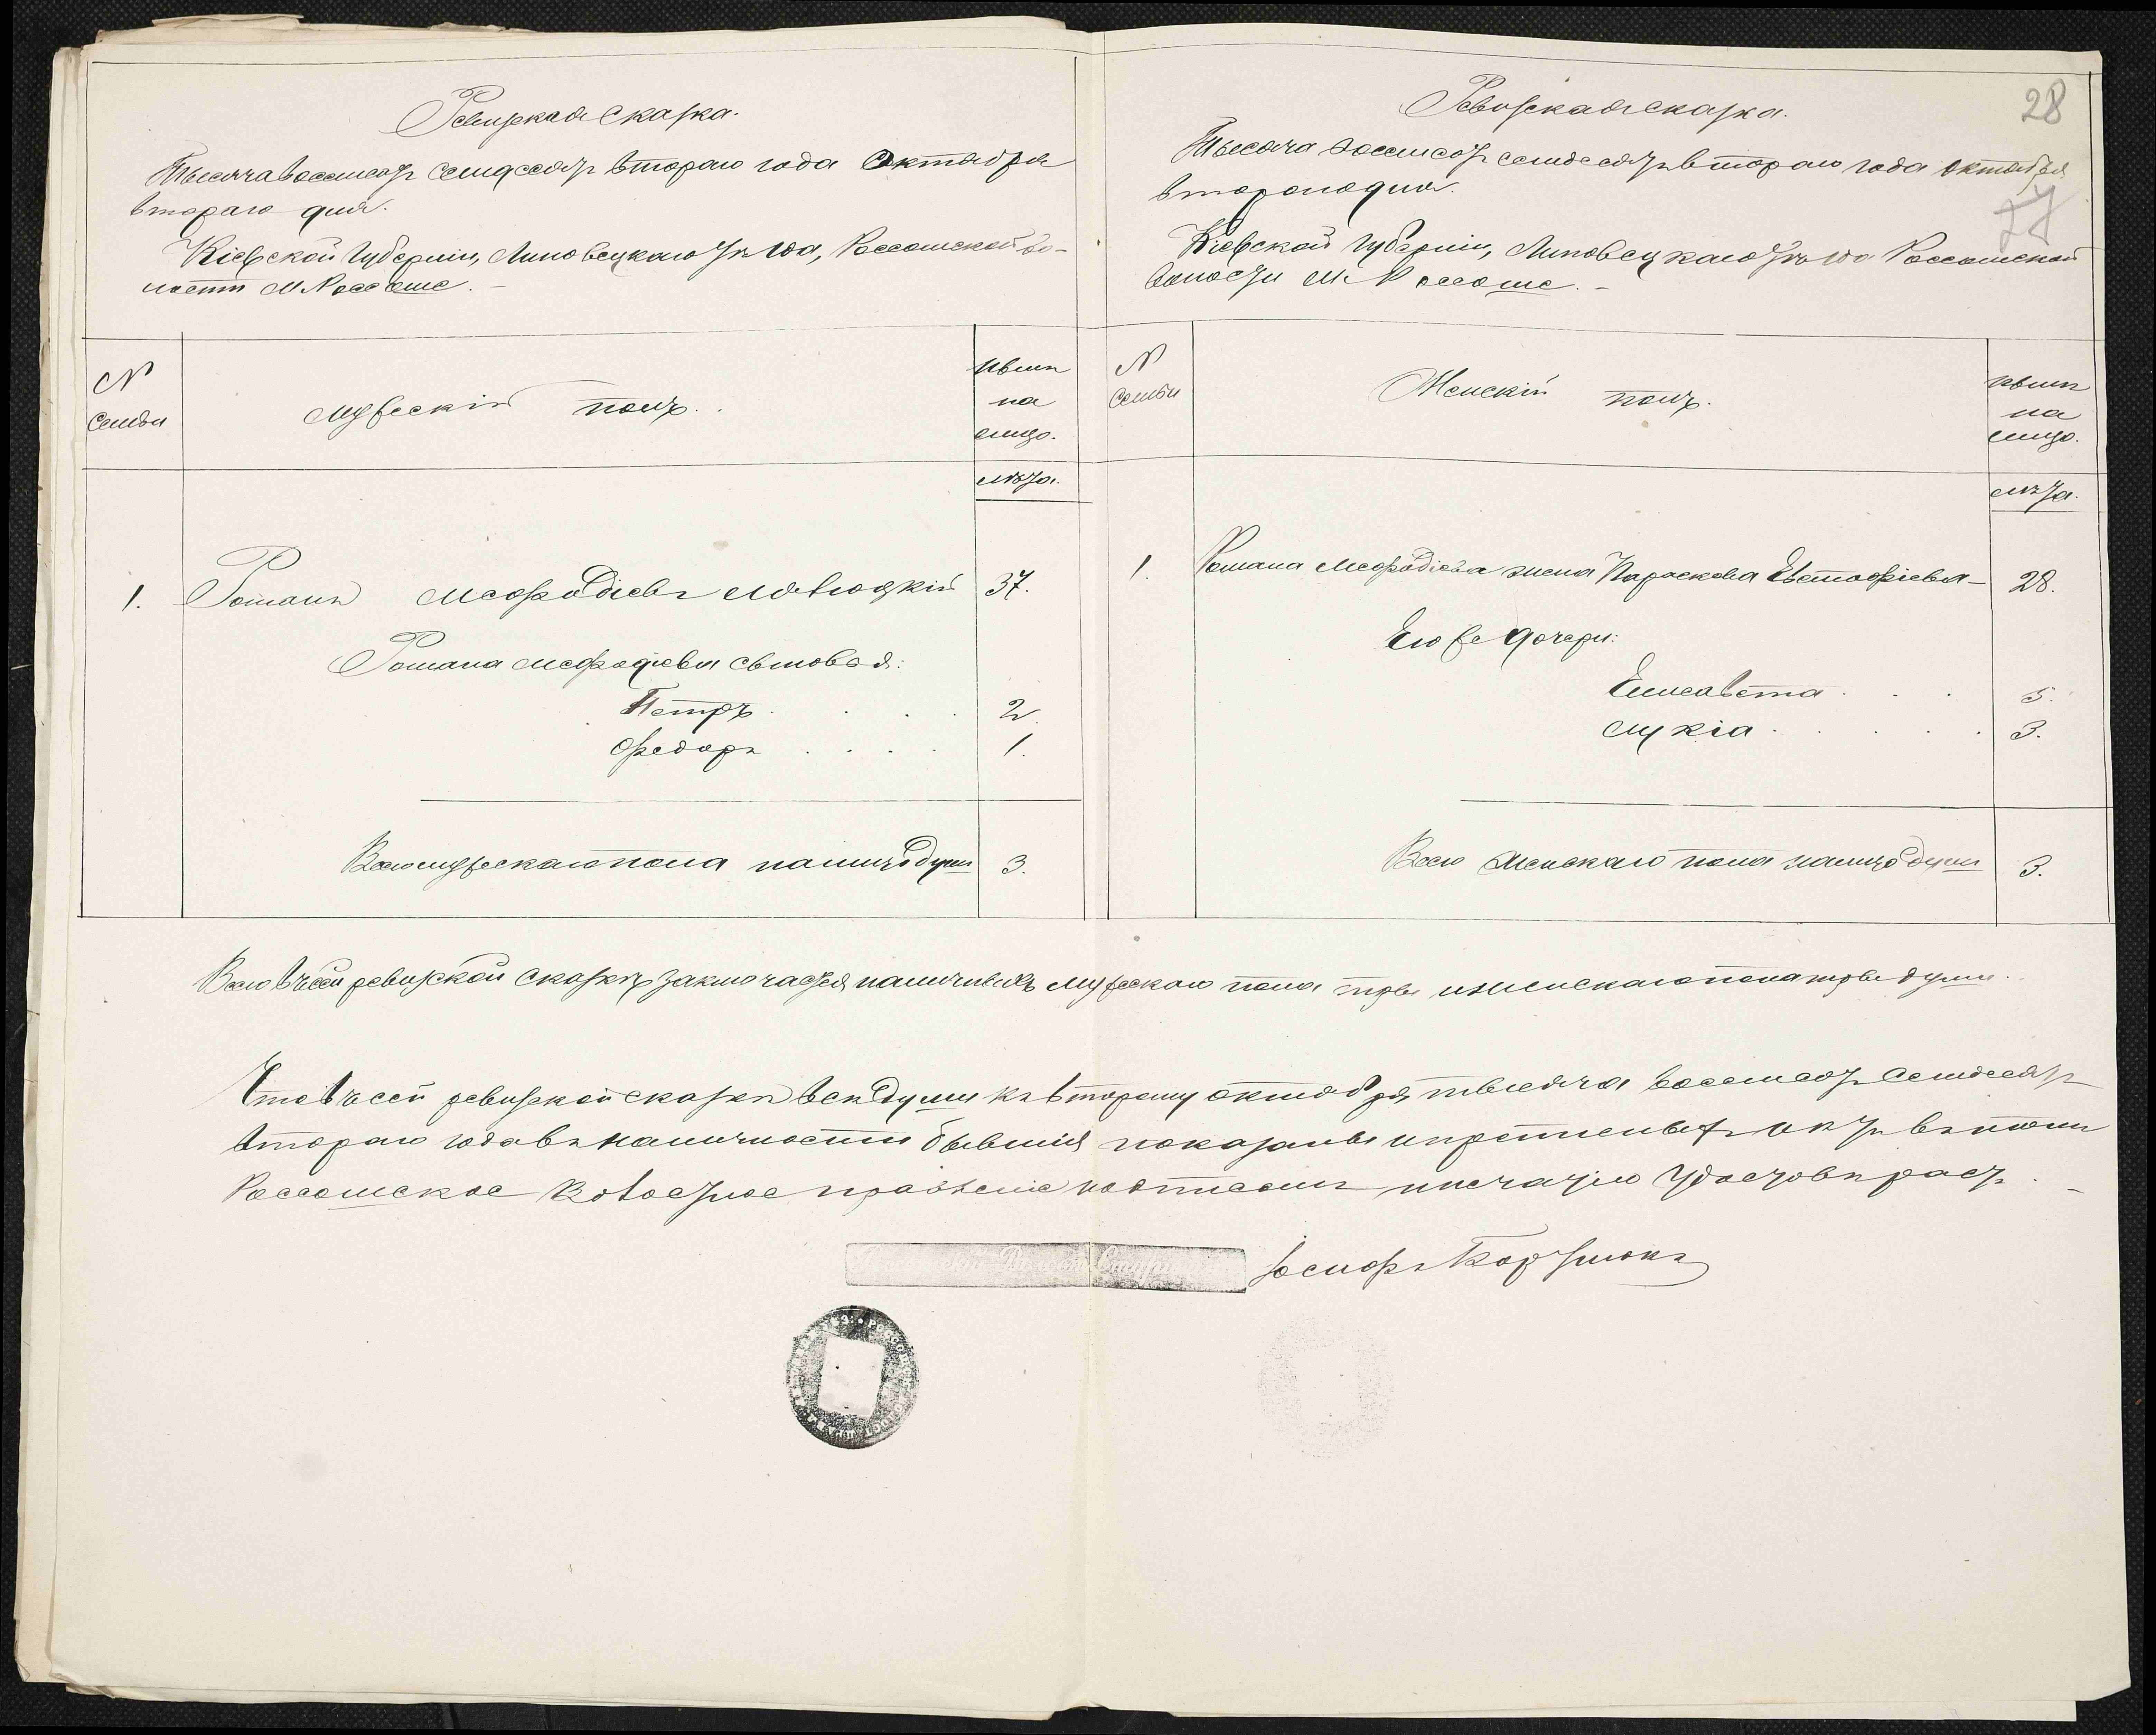 Ревизская сказка.
Тысяча восемсотъ семдесятъ втораго года Октября
втораго дня.
Кіевской Губерніи, Липовецкаго уѣзда, Россошской во-
лости М. Россоше.
№
семьи
Мужескій полъ.
Нынѣ
на
лицо.
лѣта.
1. Романъ Мефодіевъ 37.
Романа Мефодіева сыновья:
Петръ . . . . 2.
Федоръ . . . . 1.
Всего мужескаго пола налицо душъ 3.
28
27
Ревизская сказка.
Тысяча восемсотъ семдесятъ втораго года октября
втораго дня.
Кіевской Губерніи, Липовецкаго уѣзда Россошской
волости М. Россоше.
№
семьи
Женскій полъ.
Нынѣ
на
лицо.
лѣта.
1. Романа Мефодіева жена Параскева Евстафіева 28.
Его же дочери:
Елисавета . . . 5.
Лукія . . . . . 3.
Всего женскаго пола налицо душъ 3.
Всего въ сей ревизской сказкѣ заключается наличныхъ мужескаго пола три и женскаго пола три души.
Что въ сей ревизской сказкѣ всѣ души къ второму октября тысяча восемсотъ семдесятъ
втораго года въ наличности бывшія показаны и прописныхъ нѣтъ въ томъ
Россошское Волостное правленіе подписомъ и печатью удостовѣряетъ.
Іосифъ